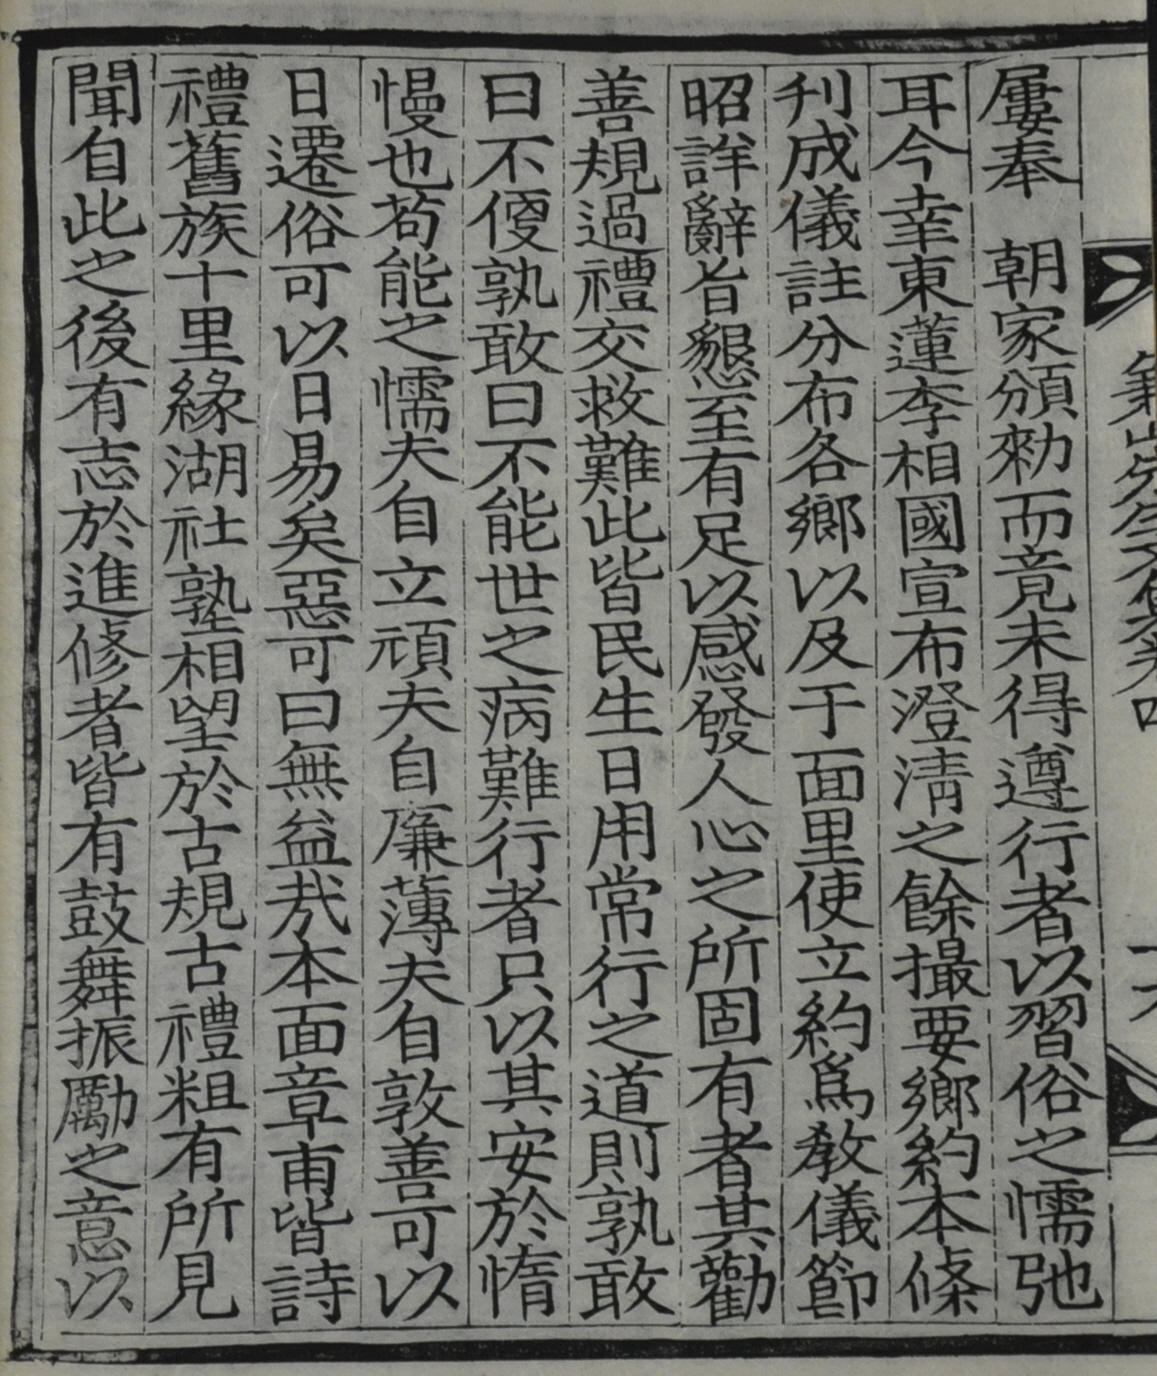 屢奉　朝家頒勑而竟未得遵行者以習俗之懦弛
耳今幸東蓮李相國宣布澄淸之餘撮要鄉約本條
刋成儀註分布各鄉以及于面里使立約爲敎儀節
昭詳辭旨懇至有足以感發人心之所固有者其勸
善規過禮交救難此皆民生日用常行之道則孰敢
曰不便孰敢曰不能世之病難行者只以其安於惰
慢也苟能之懦夫自立頑夫自廉薄夫自敦善可以
日遷俗可以日易矣惡可曰無益㢤本面章甫皆詩
禮舊族十里緣湖社塾相望於古規古禮粗有所見
聞自此之後有志於進修者皆有鼓舞振勵之意以
先生文集卷